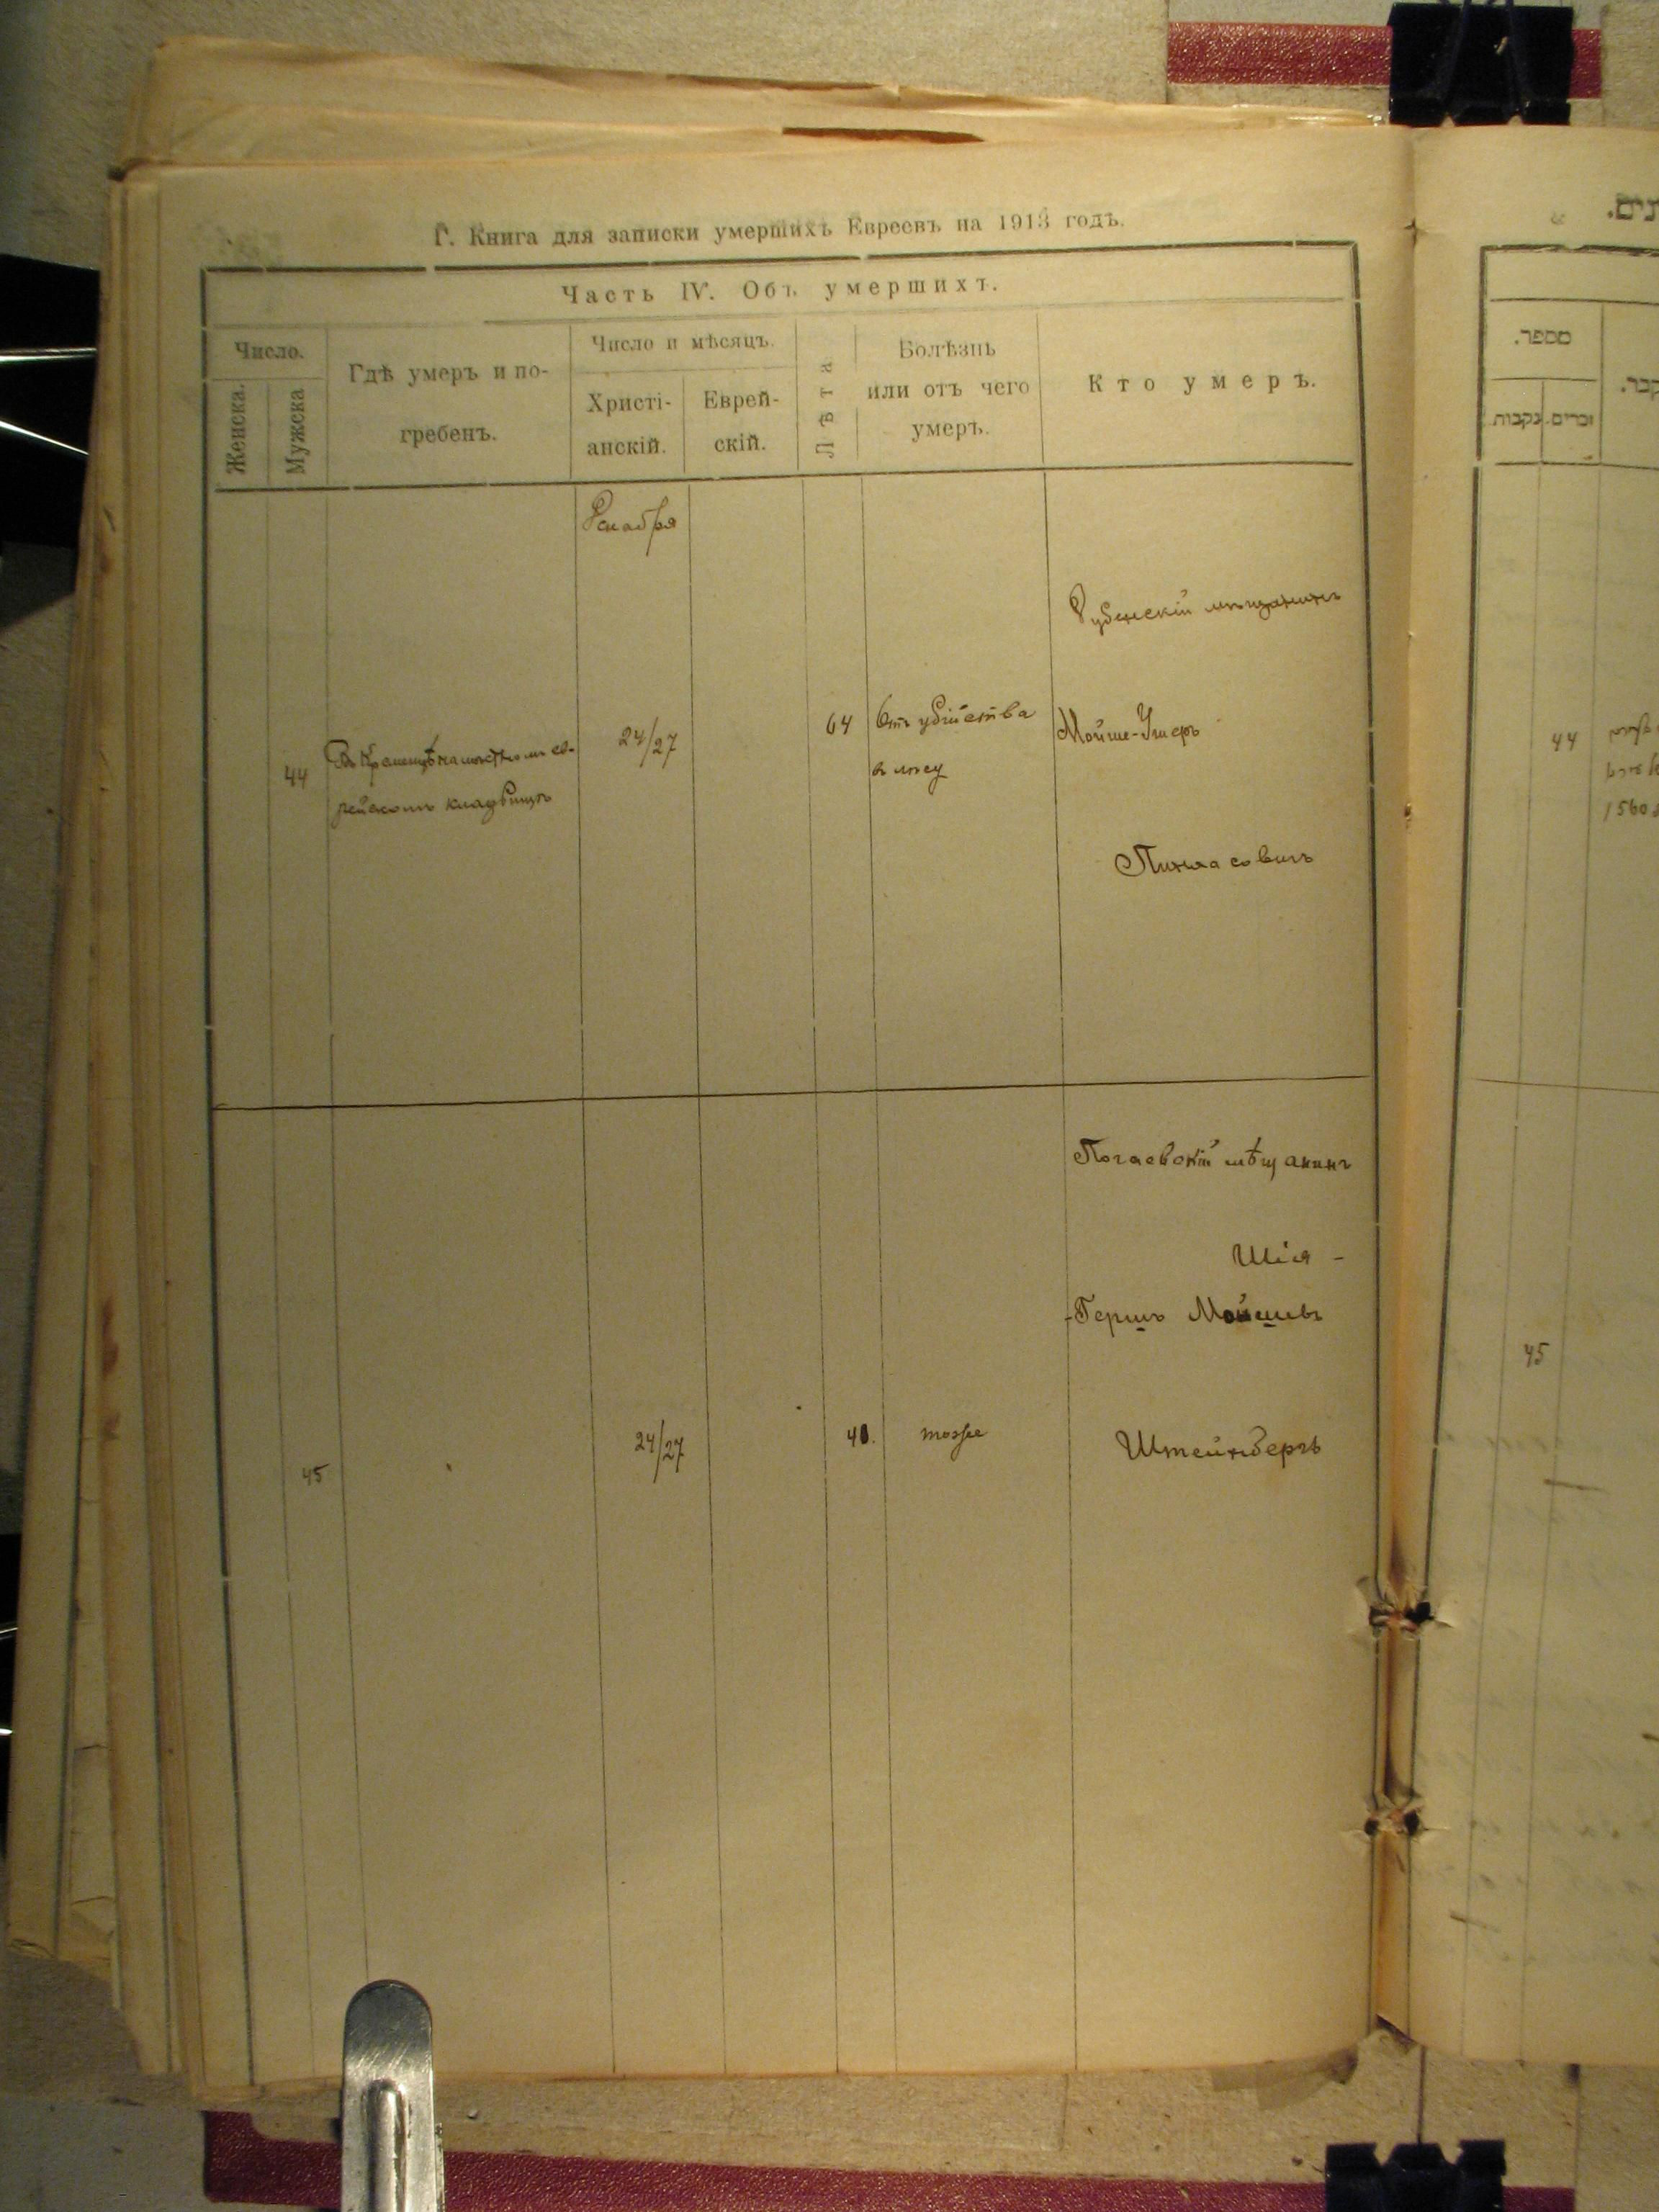 Г. Книга для записки умершихъ Евреевъ на 1913 годъ.
Часть IV. Объ умершихъ.
Число.
Женска.
Мужска
Гдѣ умеръ и по-
гребенъ.
Число и мѣсяцъ.
Христі-
анскій.
Еврей-
скій.
Лѣта
Болѣзнь
или отъ чего
умеръ.
Кто умеръ.
Декабря
44
Въ Кременцѣ на мѣстномъ ев-
рейскомъ кладбищѣ
24/27
64
Отъ убійства
въ лѣсу
Дубенскій мѣщанинъ
Мойше-Ушеръ
Пинхасовичъ
45
24/27
40.
тоже
Почаевскій мѣщанинъ
Шія -
-Гершъ Мойшевъ
Штейнбергъ
מספר.
זכרים.
נקבות.
44
1560
45